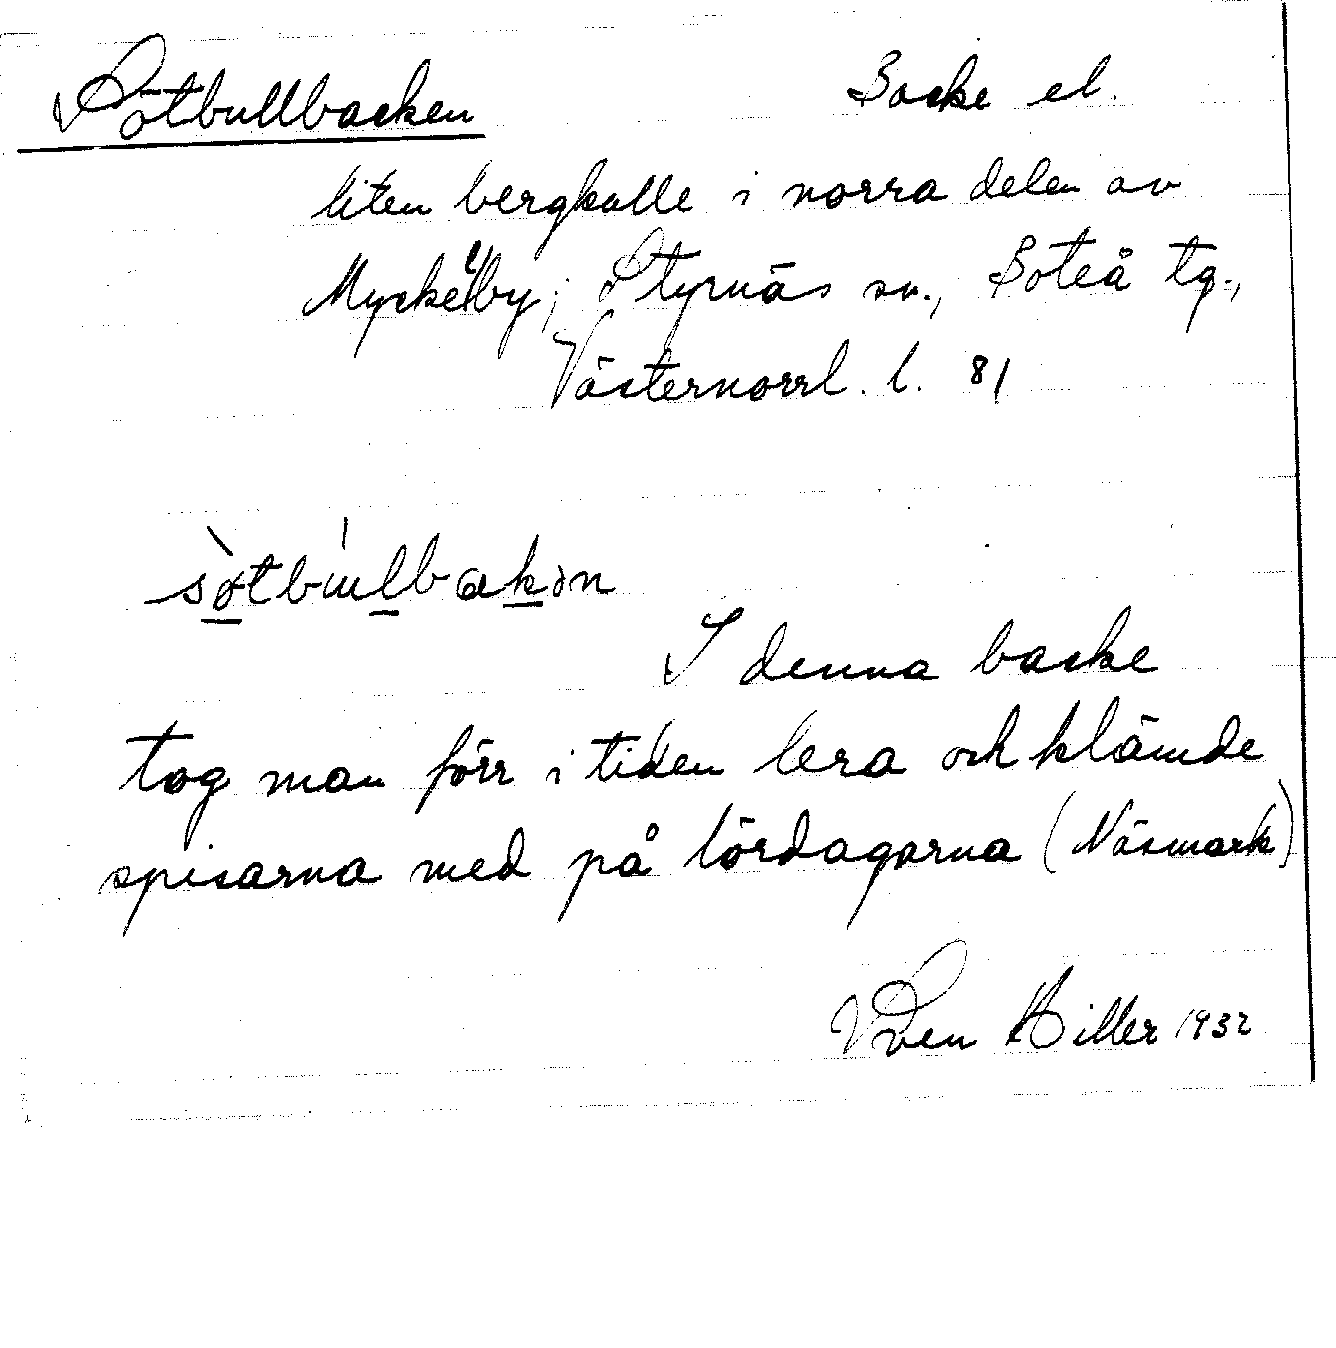 Sötbullbacken Backe el.
liten bergkulle i norra delen av
Myckelby; Styrnäs sn., Boteå tg.,
Västernorrl. l. 81
sø̀tbu̍lbakən
I denna backe
tog man förr i tiden lera och klämde
spisarna med på lördagarna (Näsmark)
Sven Hiller 1932